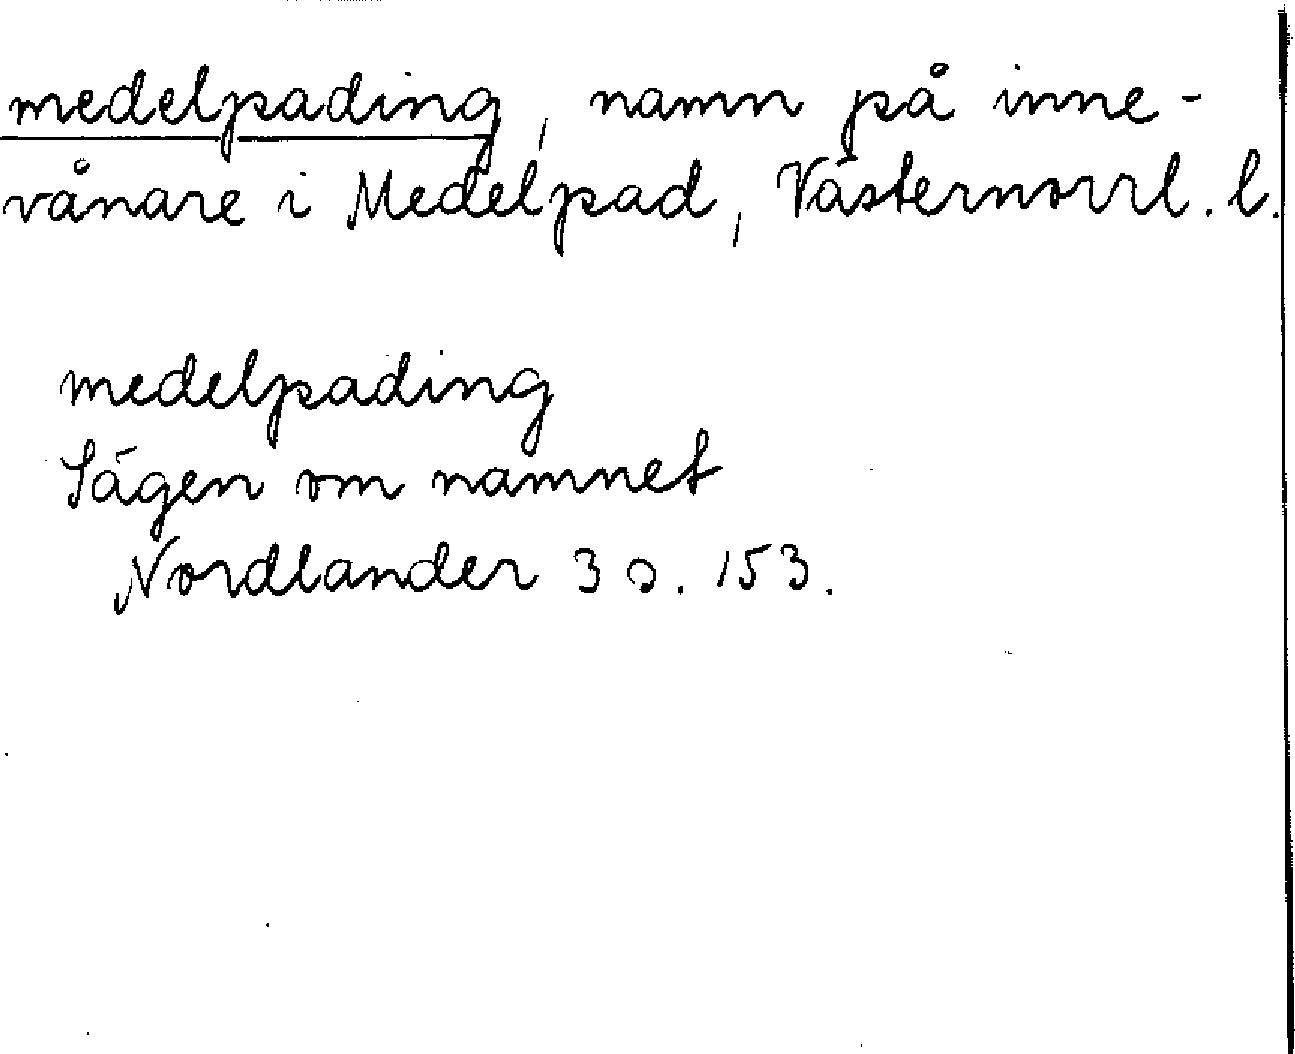 medelpading, namn på inne-
vånare i Medelpad, Västernorrl. l.
medelpading
Sägen om namnet
Nordlander 3 s. 153.